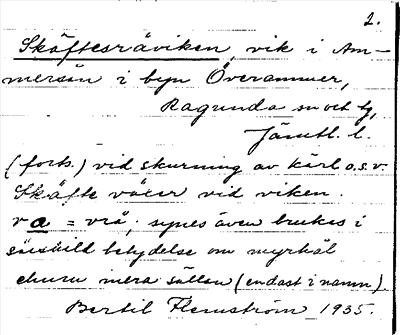 2.
Skäftesråviken, vik i Am-
mersån i byn Överammer,
Ragunda sn och tg,
Jämtl. l.
(forts.) vid skurning av kärl o.s.v.
Skäfte växer vid viken.
rå = vrå; synes även brukas i
särskild betydelse om myrkål
ehuru mera sällan (endast i namn).
Bertil Flemström 1935.